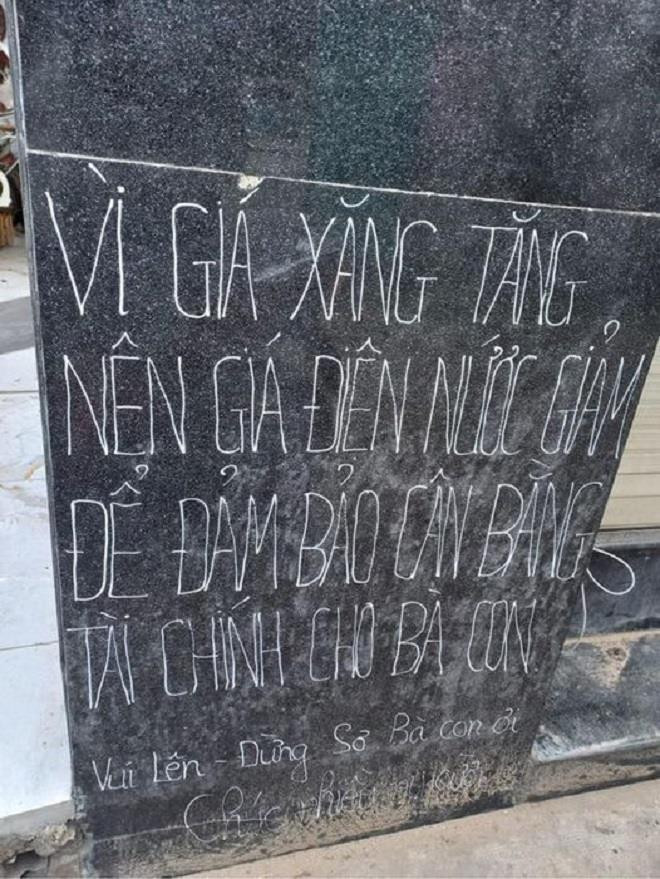 VÌ GIÁ XĂNG TĂNG
NÊN GIÁ ĐIỆN NƯỚC GIẢM
ĐỂ ĐẢM BẢO CÂN BẰNG
TÀI CHÍNH CHO BÀ CON.
Vui Lên - Đừng Sợ Bà con ơi
Chúc nhiều